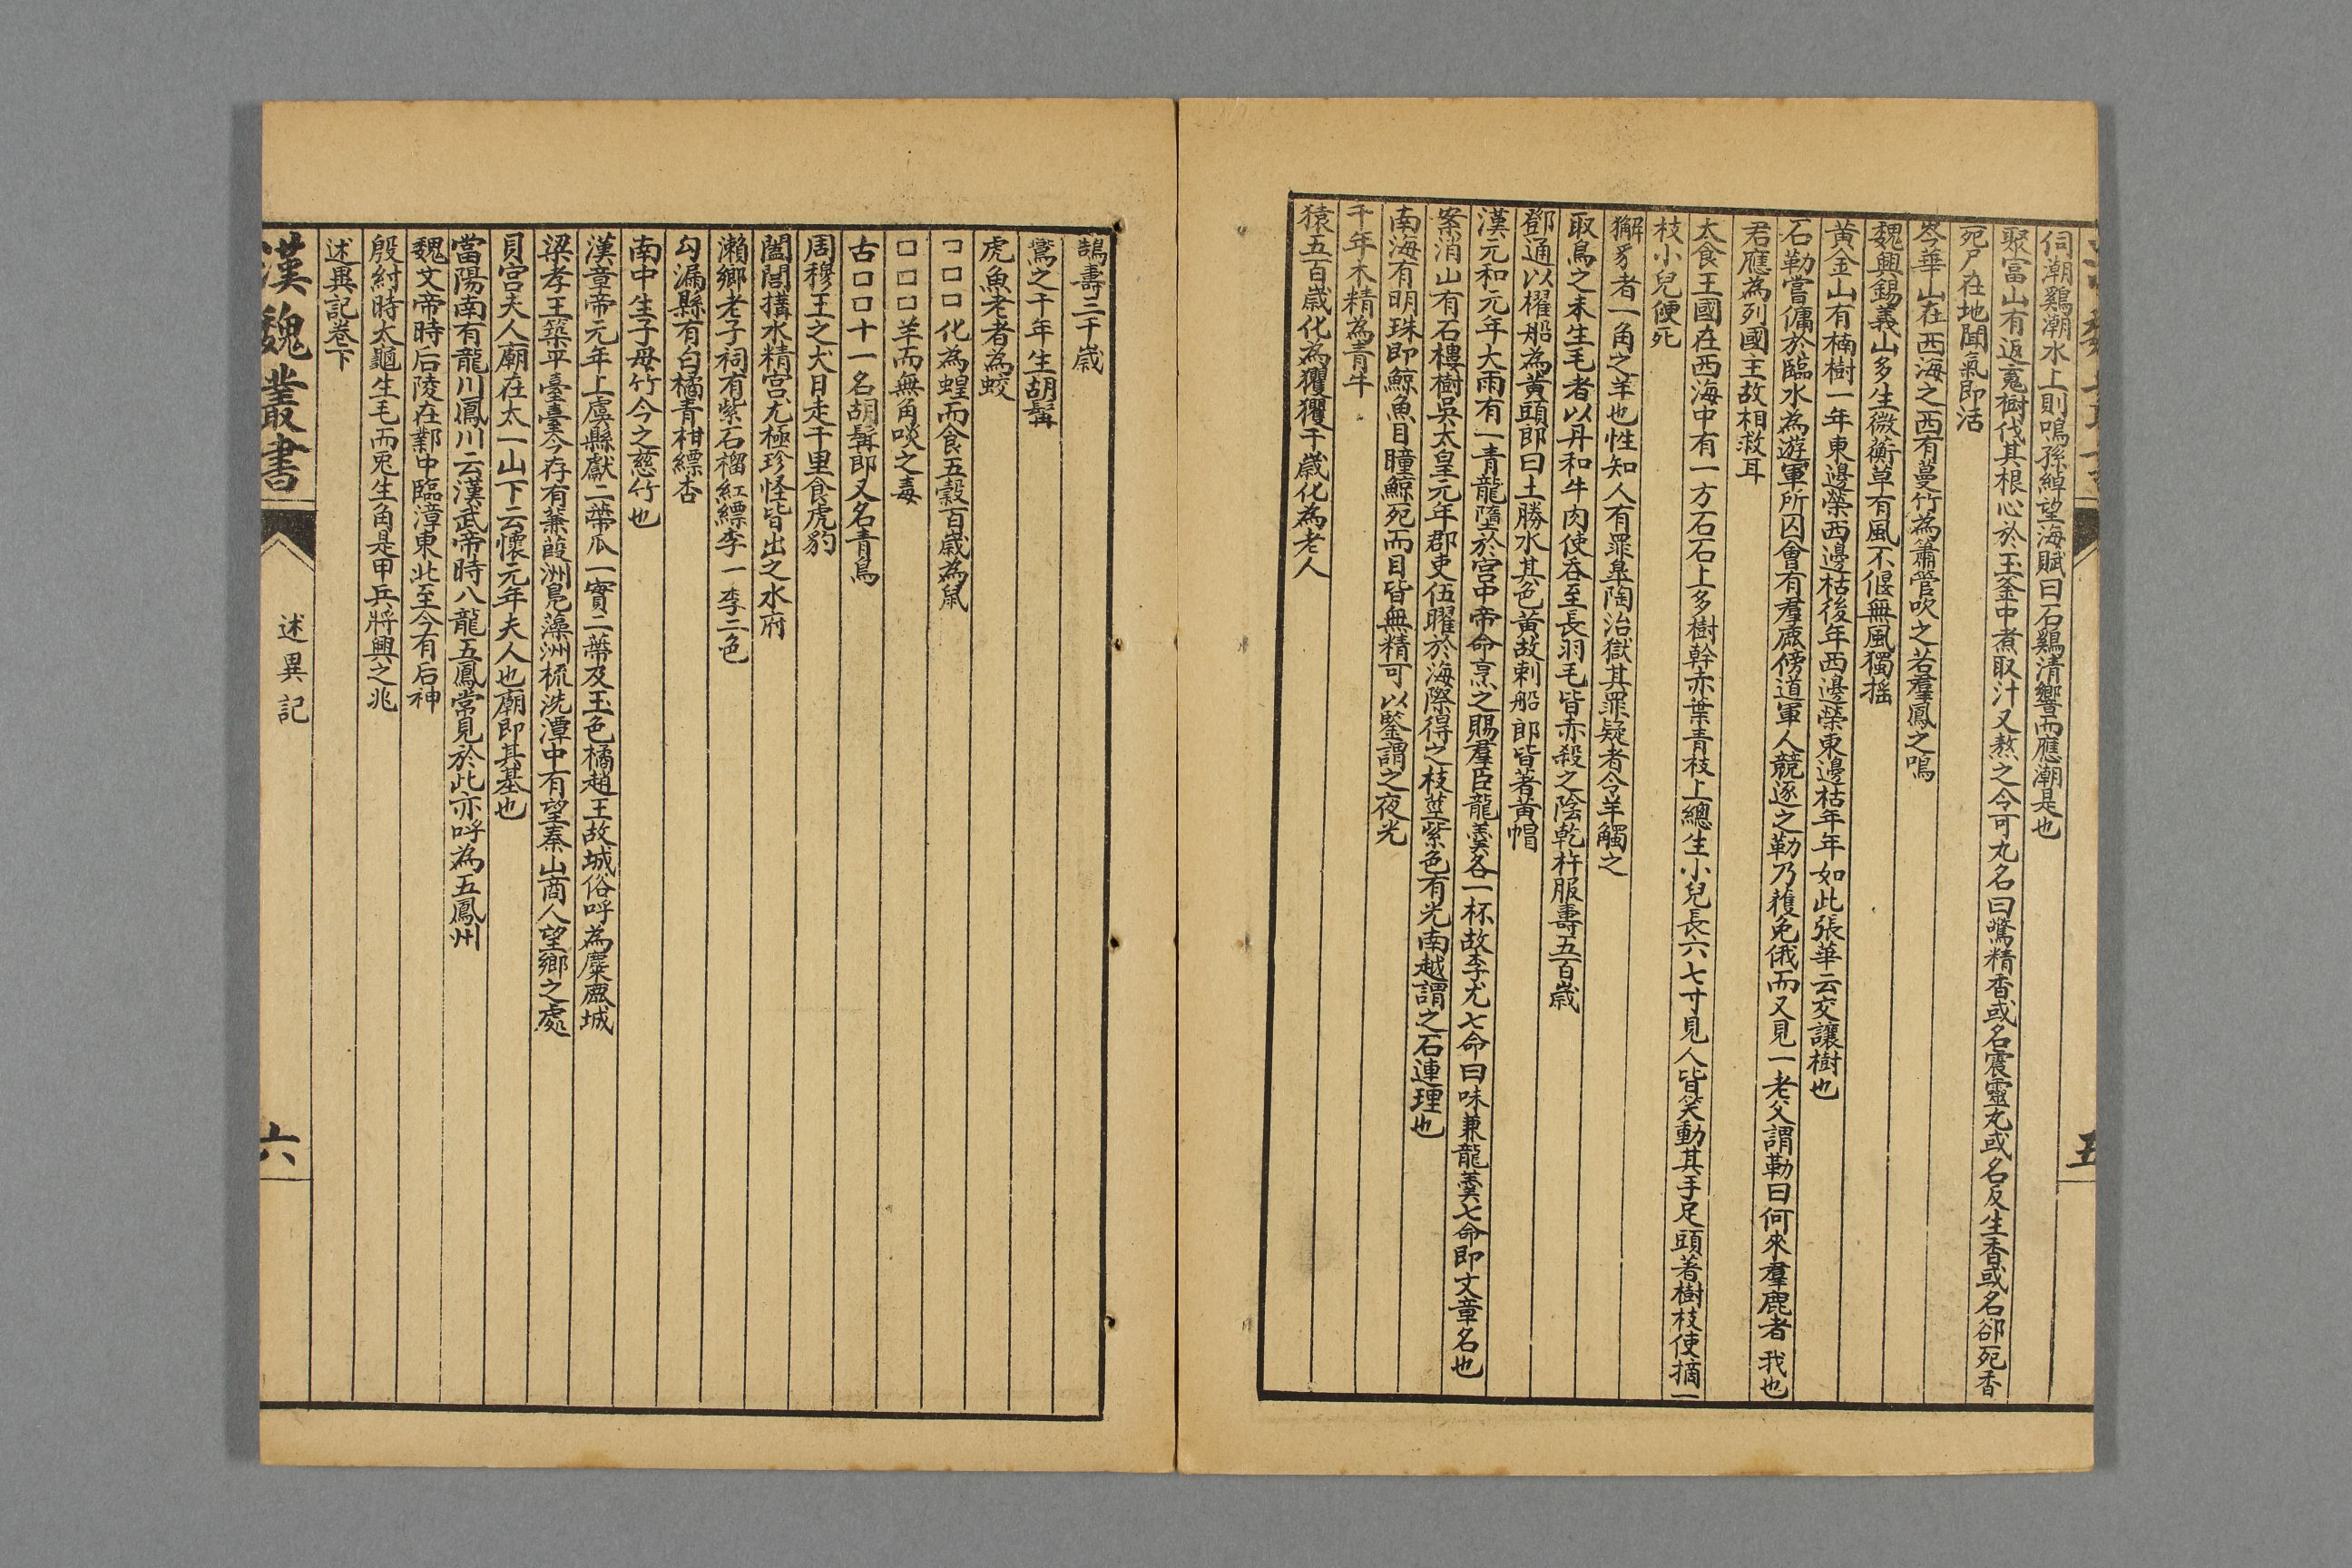 五
伺潮鷄潮水上則鳴孫綽望海賦曰石鷄清響而應潮是也
聚窟山有返䰟樹伐其根心於玉釜中煮取汁又熬之令可丸名曰驚精香或名震靈丸或名反生香或名郤死香
死尸在地聞氣即活
岑華山在西海之西有蔓竹為簫管吹之若羣鳳之鳴
魏興錫義山多生微蘅草有風不偃無風獨搖
黄金山有楠樹一年東邊榮西邊枯後年西邊榮東邊枯年年如此張華云交讓樹也
石勒嘗傭於臨水為遊軍所囚會有羣鹿傍道軍人競逐之勒乃獲免俄而又見一老父謂勒曰何來羣鹿者我也
君應為列國主故相救耳
太食王國在西海中有一方石石上多樹幹赤葉青枝上總生小兒長六七寸見人皆笑動其手足頭著樹枝使摘一
枝小兒便死
獬豸者一角之羊也性知人有罪臯陶治獄其罪疑者令羊觸之
取鳥之未生毛者以丹和牛肉使吞至長羽毛皆赤殺之陰乾杵服壽五百歲
鄧通以櫂船為黄頭郎曰土勝水其色黄故剌船郎皆著黄帽
漢元和元年大雨有一青龍墮於宫中帝命烹之賜羣臣龍羹各一杯故李尤七命曰味兼龍羹七命即文章名也
案消山有石樓樹吳太皇元年郡吏伍曜於海際得之枝莖紫色有光南越謂之石連理也
南海有明珠即鯨魚目瞳鯨死而目皆無精可以鑒謂之夜光
千年木精為青牛
猿五百歲化為玃玃千歲化為老人
鵠壽三千歲
鷰之千年生胡髯
虎魚老者為蛟
□□□化為蝗而食五穀百歲為鼠
□□□羊而無角啖之毒
古□□十一名胡髯郎又名青鳥
周穆王之犬日走千里食虎豹
闔閭搆水精宫尤極珍怪皆出之水府
瀨鄉老子祠有紫石榴紅縹李一李二色
勾漏縣有白橘青柑縹杏
南中生子母竹今之慈竹也
漢章帝元年上虞縣獻二蔕瓜一實二蔕及玉色橘趙王故城俗呼為麋鹿城
梁孝王築平臺臺今存有蒹葭洲鳬藻洲梳洗潭中有望秦山商人望鄉之處
貝宫夫人廟在太一山下云懷元年夫人也廟即其基也
當陽南有龍川鳳川云漢武帝時八龍五鳳常見於此亦呼為五鳳州
魏文帝時后陵在鄴中臨漳東此至今有后神
殷紂時太龜生毛而兎生角是甲兵將興之兆
述異記卷下
漢魏叢書 述異記 六